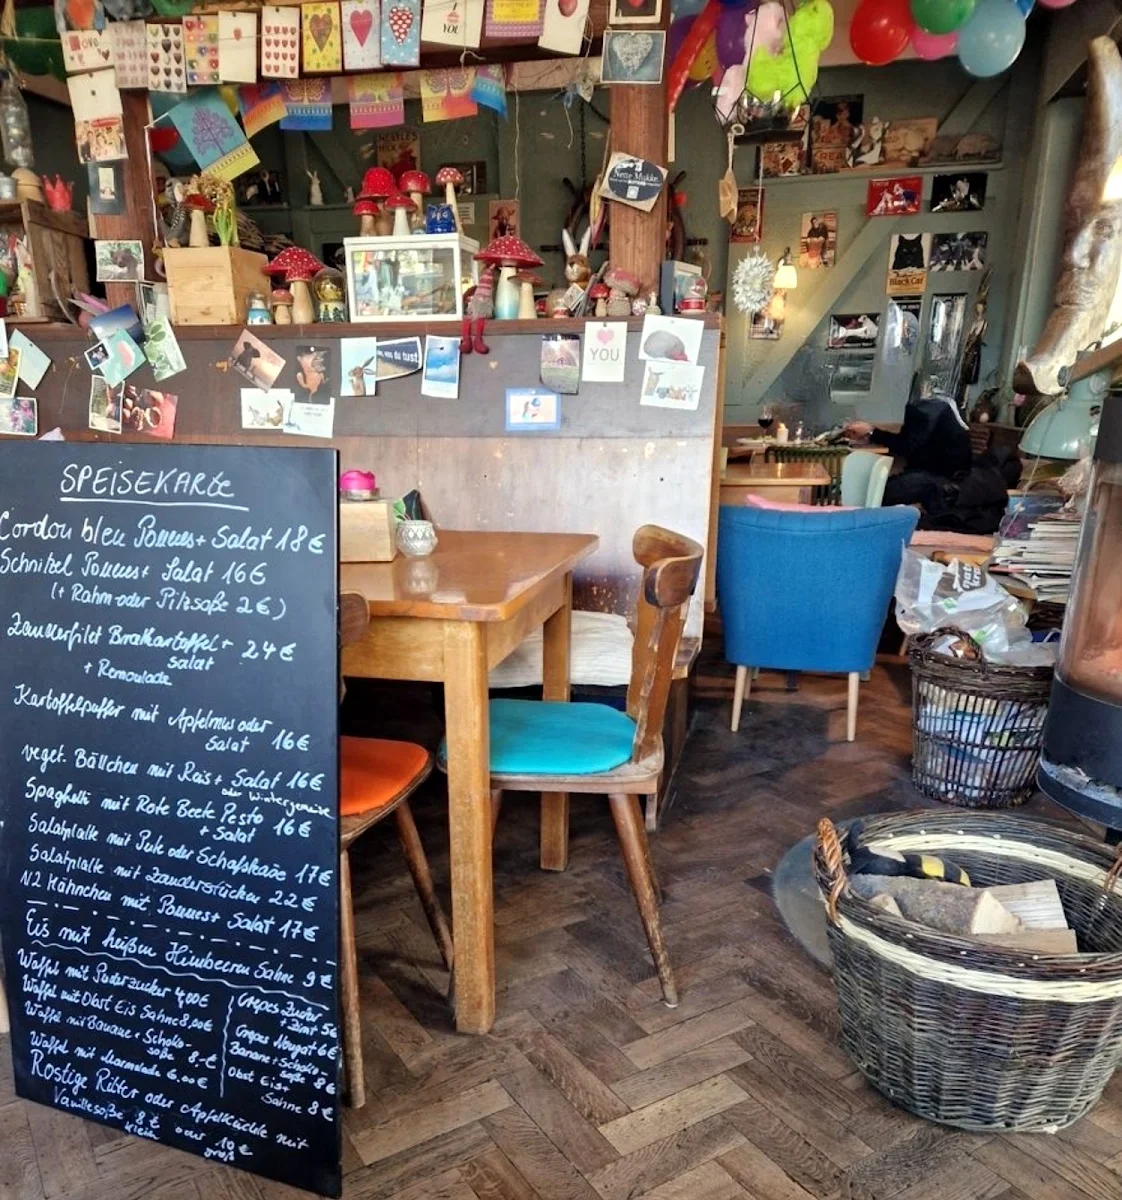 Love
YOU
Nette Mukke
Black Cat
was du tust
YOU
SPEISEKARTE
Cordon bleu Pommes + Salat 18 €
Schnitzel Pommes + Salat 16 €
(+ Rahm- oder Pilzsoße 2 €)
Zanderfilet Bratkartoffel + 24 €
Salat
+ Remoulade
Kartoffelpuffer mit Apfelmus oder
Salat 16 €
veget. Bällchen mit Reis + Salat 16 €
oder Wintergemüse
Spaghetti mit Rote Beete Pesto
+ Salat 16 €
Salatplatte mit Pute oder Schafskäse 17 €
Salatplatte mit Zanderstücken 22 €
1/2 Hähnchen mit Pommes + Salat 17 €
Eis mit heißen Himbeeren Sahne 9 €
Waffel mit Puderzucker 4,00 €
Waffel mit Obst Eis Sahne 8,00 €
Waffel mit Banane + Schoko-
soße 8,- €
Waffel mit Marmelade 6.00 €
Crepes Zucker
+ Zimt 5 €
Crepes Nougat 6 €
Banane + Schoko-
soße 8 €
Obst Eis +
Sahne 8 €
Rostige Ritter oder Apfelküchle mit
Vanillesoße 8 € oder 10 €
klein groß